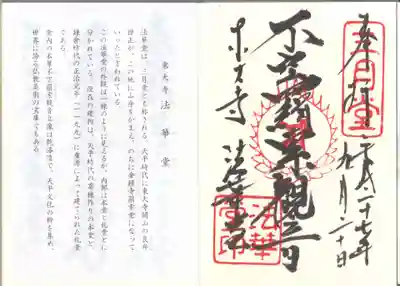 奉拝
三月堂
平成二十七年
九月二十日
不空羂索観音
法華堂印
東大寺 法華堂
東大寺 法華堂
法華堂は、三月堂とも称される。天平時代に東大寺開山の良弁
僧正が、この地に山寺をかまえ、のちに金鐘寺羂索堂になって
いったと言われている。
この法華堂の外観は一棟のように見えるが、内部は本堂と礼堂とに
分かれている。現在の建物は、天平時代の寄棟作りの本堂と、
鎌倉時代の正治元年(一一九九)に重源によって建てられた礼堂
である。
堂内の本尊不空羂索観音立像は乾漆造で、天平文化の粋を集め、
世界に誇る仏教美術の宝庫でもある。